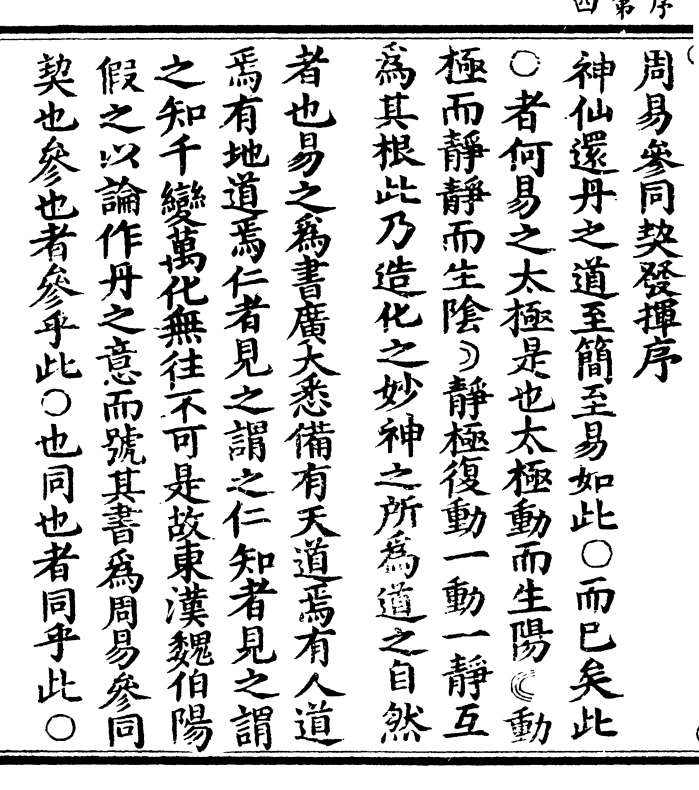 序第四
周易參同契發揮序
神仙還丹之道至簡至易如此〇而已矣此
〇者何易之太極是也太極動而生陽☾動
極而靜靜而生陰☽靜極復動一動一靜互
爲其根此乃造化之妙神之所爲道之自然
者也易之爲書廣大悉備有天道焉有人道
焉有地道焉仁者見之謂之仁知者見之謂
之知千變萬化無往不可是故東漢魏伯陽
假之以論作丹之意而號其書爲周易參同
契也參也者參乎此〇也同也者同乎此〇